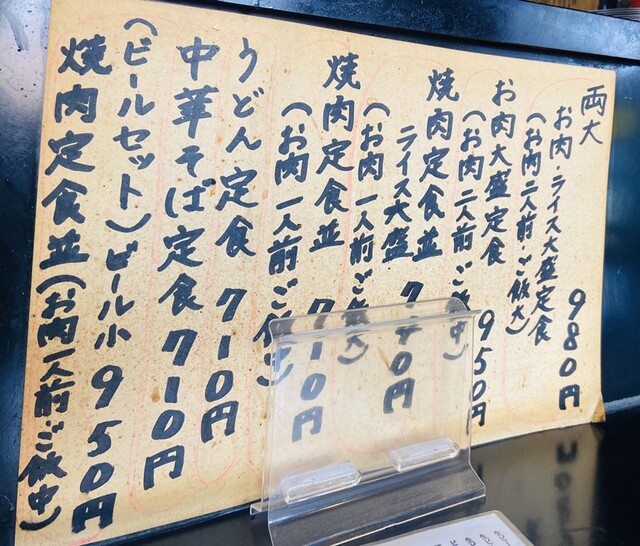 両大
お肉・ライス大盛定食 980円
(お肉二人前・ご飯大)
お肉大盛定食 950円
(お肉二人前・ご飯中)
焼肉定食並
ライス大盛 740円
(お肉一人前・ご飯大)
焼肉定食並 710円
(お肉一人前・ご飯中)
うどん定食 710円
中華そば定食 710円
(ビールセット)ビール小 950円
焼肉定食並(お肉一人前・ご飯中)